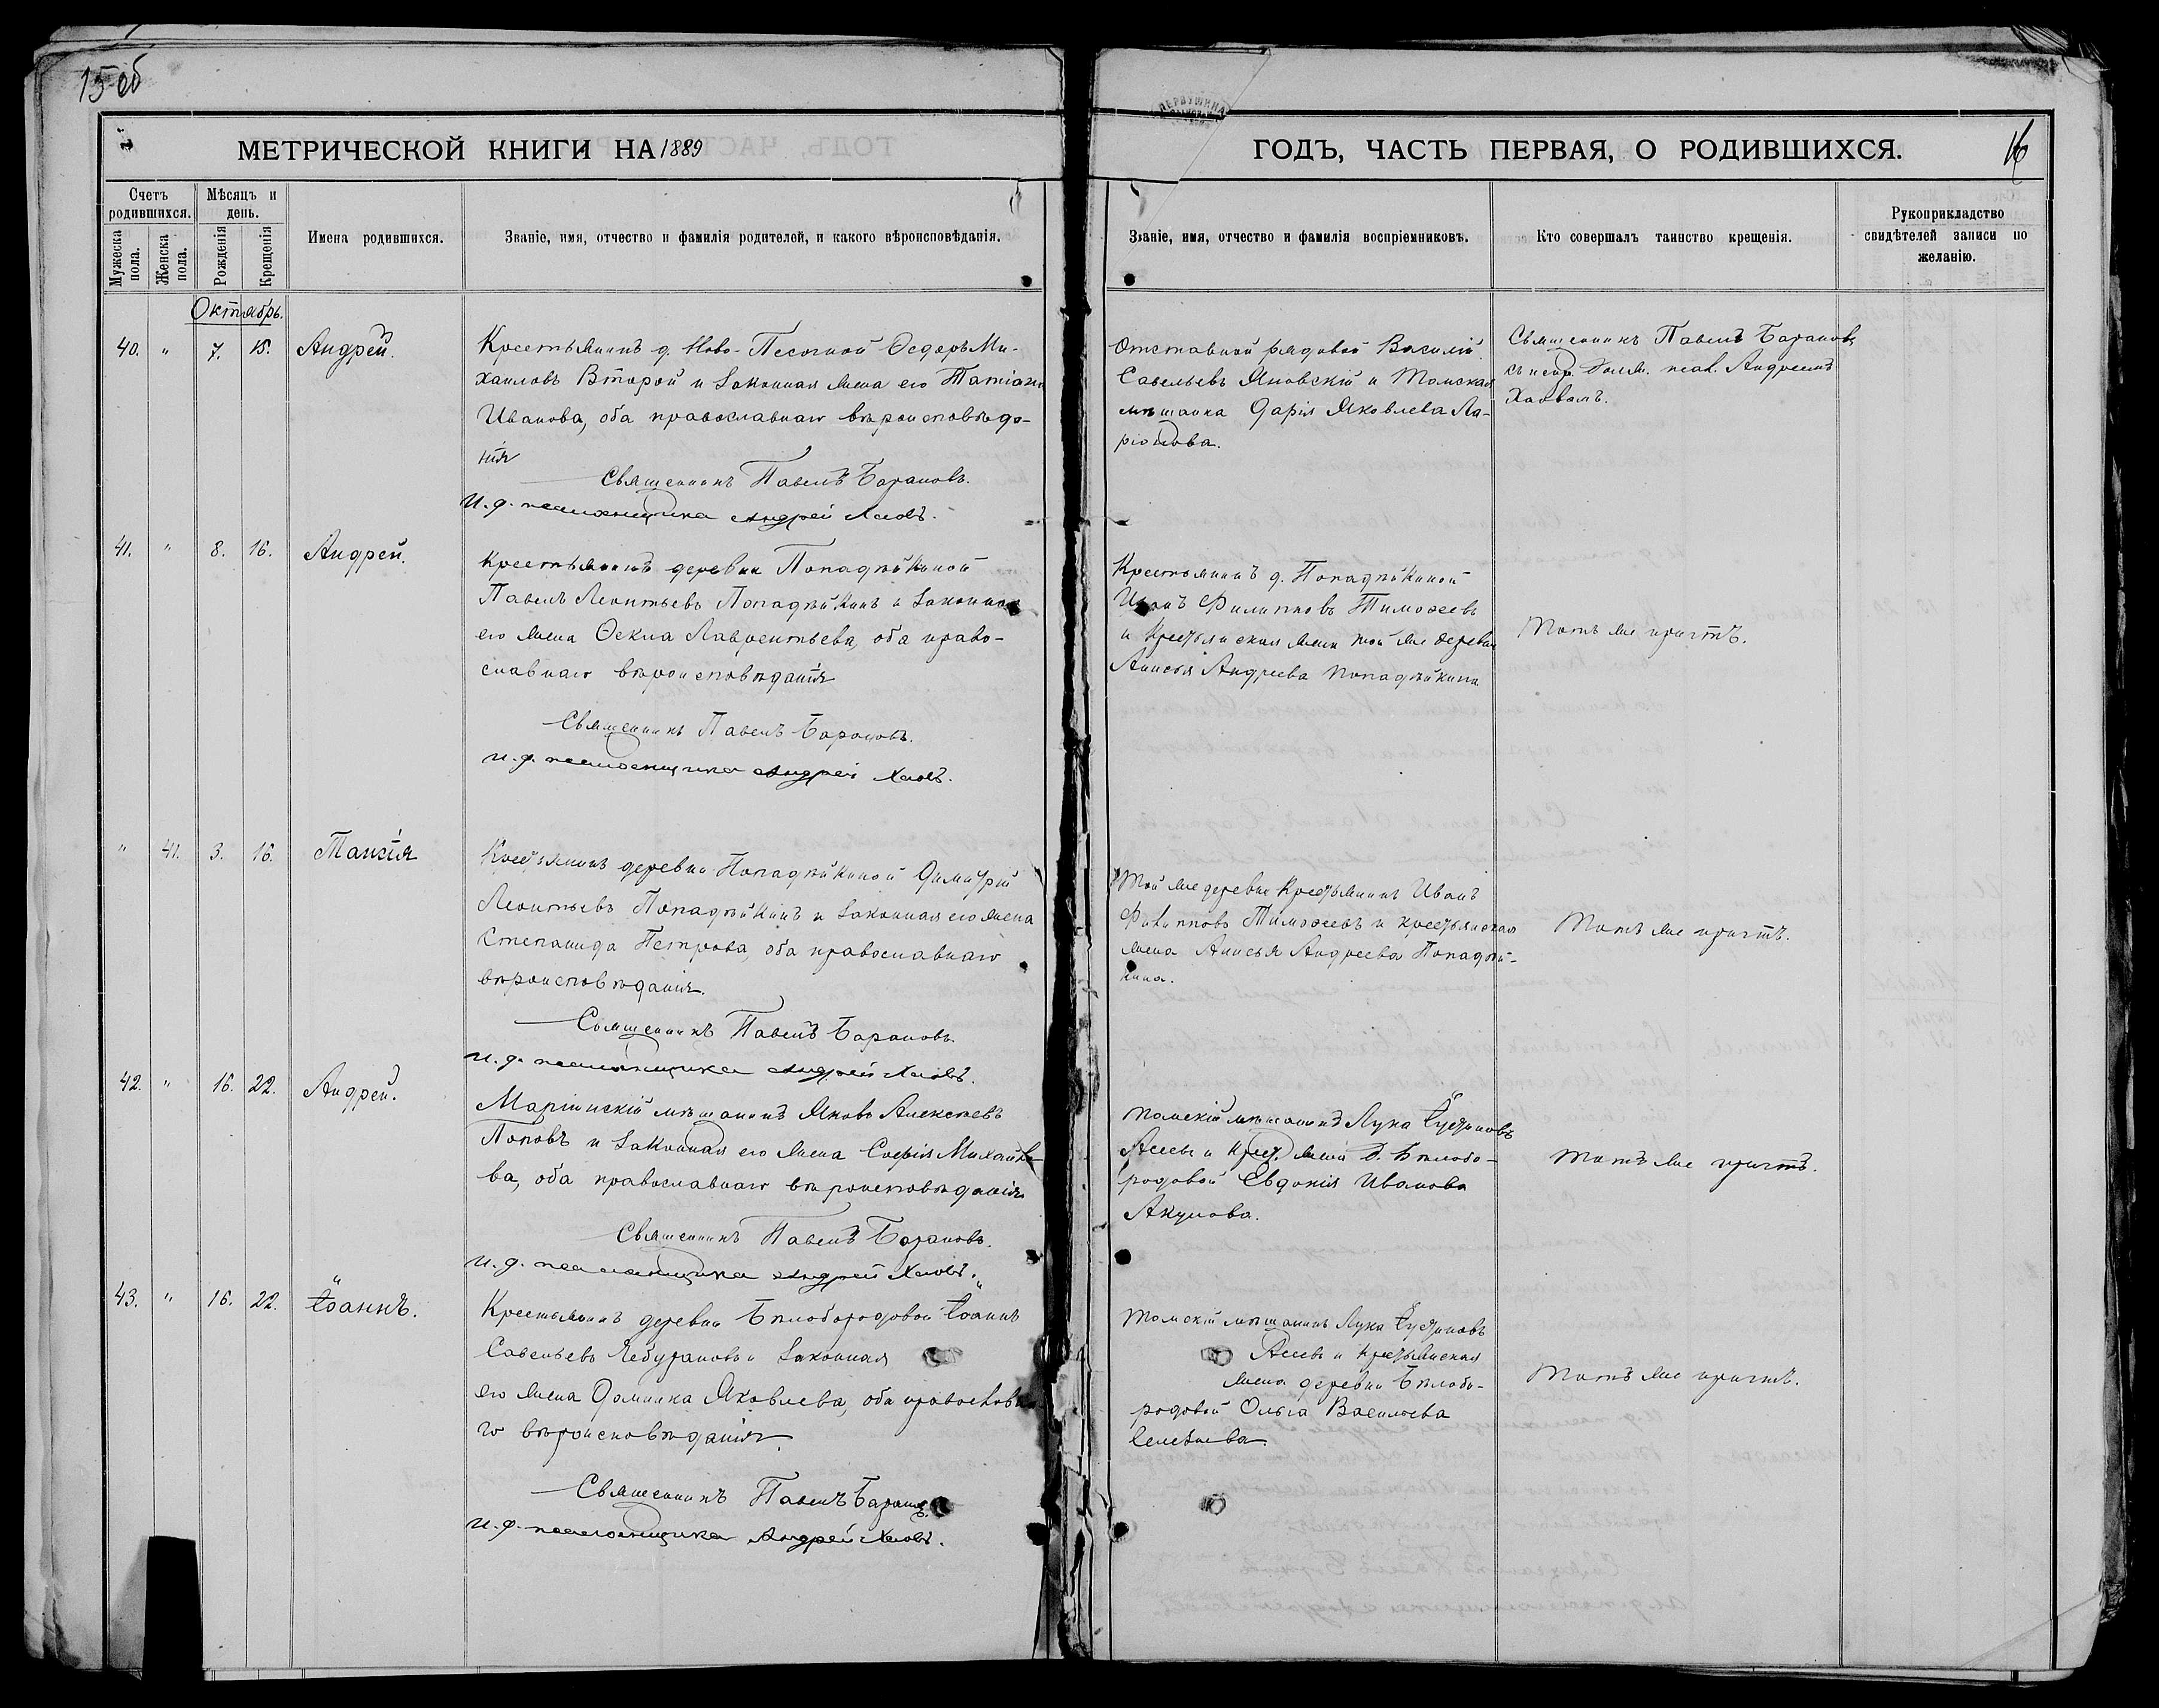 15 об
МЕТРИЧЕСКОЙ КНИГИ НА 1889
ГОДЪ, ЧАСТЬ ПЕРВАЯ, О РОДИВШИХСЯ.
16
Счетъ родившихся.
Мужеска пола.
Женска пола.
Мѣсяцъ и день.
Рожденія
Крещенія
Имена родившихся.
Званіе, имя, отчество и фамилія родителей, и какого вѣроисповѣданія.
Званіе, имя, отчество и фамилія воспріемниковъ.
Кто совершалъ таинство крещенія.
Рукоприкладство свидѣтелей записи по желанію.
Октябрь.
40. " 7. 15. Андрей.
Крестьянинъ д. Ново-Песочной Ѳедоръ Ми-
хаиловъ Второй и законная жена его Татіана
Иванова, оба православнаго вѣроисповѣда-
нія
Священникъ Павелъ Барановъ.
И. д. псаломщика Андрей Хаовъ.
Отставной рядовой Василій
Савельевъ Яновскій и Томская
мѣщанка Дарія Яковлева Ла-
ріонова.
Священникъ Павелъ Барановъ
съ испр. долж. псал. Андреемъ
41. " 8. 16. Андрей.
Крестьянинъ деревни Попадѣйкиной
Павелъ Леонтьевъ Попадѣйкинъ и законная
его жена Ѳекла Лаврентьева, оба право-
славнаго вѣроисповѣданія
Священникъ Павелъ Барановъ.
и. д. псаломщика Андрей Хаовъ.
Крестьянинъ д. Попадѣйкиной
Иванъ Филипповъ Тимоѳеевъ
и крестьянская жена той же деревни
Анисья Андреева Попадѣйкина
Тотъ же причтъ.
" 41. 3. 16. Таисія
Крестьянинъ деревни Попадѣйкиной Димитрій
Леонтьевъ Попадѣйкинъ и законная его жена
Степанида Петрова, оба православнаго
вѣроисповѣданія.
Священникъ Павелъ Барановъ.
и. д. псаломщика Андрей Хаовъ.
Той же деревни крестьянинъ Иванъ
Филипповъ Тимоѳеевъ и крестьянская
жена Анисья Андреева Попадѣй-
кина.
Тотъ же причтъ.
42. " 16. 22. Андрей.
Маріинскій мѣщанинъ Яковъ Алексѣевъ
Поповъ и законная его жена Софія Михайло-
ва, оба православнаго вѣроисповѣданія
Священникъ Павелъ Барановъ.
и. д. псаломщика Андрей Хаовъ.
Томскій мѣщанинъ Лука Іустиновъ
и крест. жена д. Бѣлобо-
родовой Евдокія Иванова
Акулова.
Тотъ же причтъ.
43. " 16. 22. Іоаннъ.
Крестьянинъ деревни Бѣлобородовой Іоаннъ
Савельевъ Чебурановъ и законная
его жена Домника Яковлева, оба православна-
го вѣроисповѣданія.
Священникъ Павелъ Барановъ.
и. д. псаломщика Андрей Хаовъ.
Томскій мѣщанинъ Лука Іустиновъ
и крестьянская
жена деревни Бѣлобо-
родовой Ольга Васильева
Тотъ же причтъ.